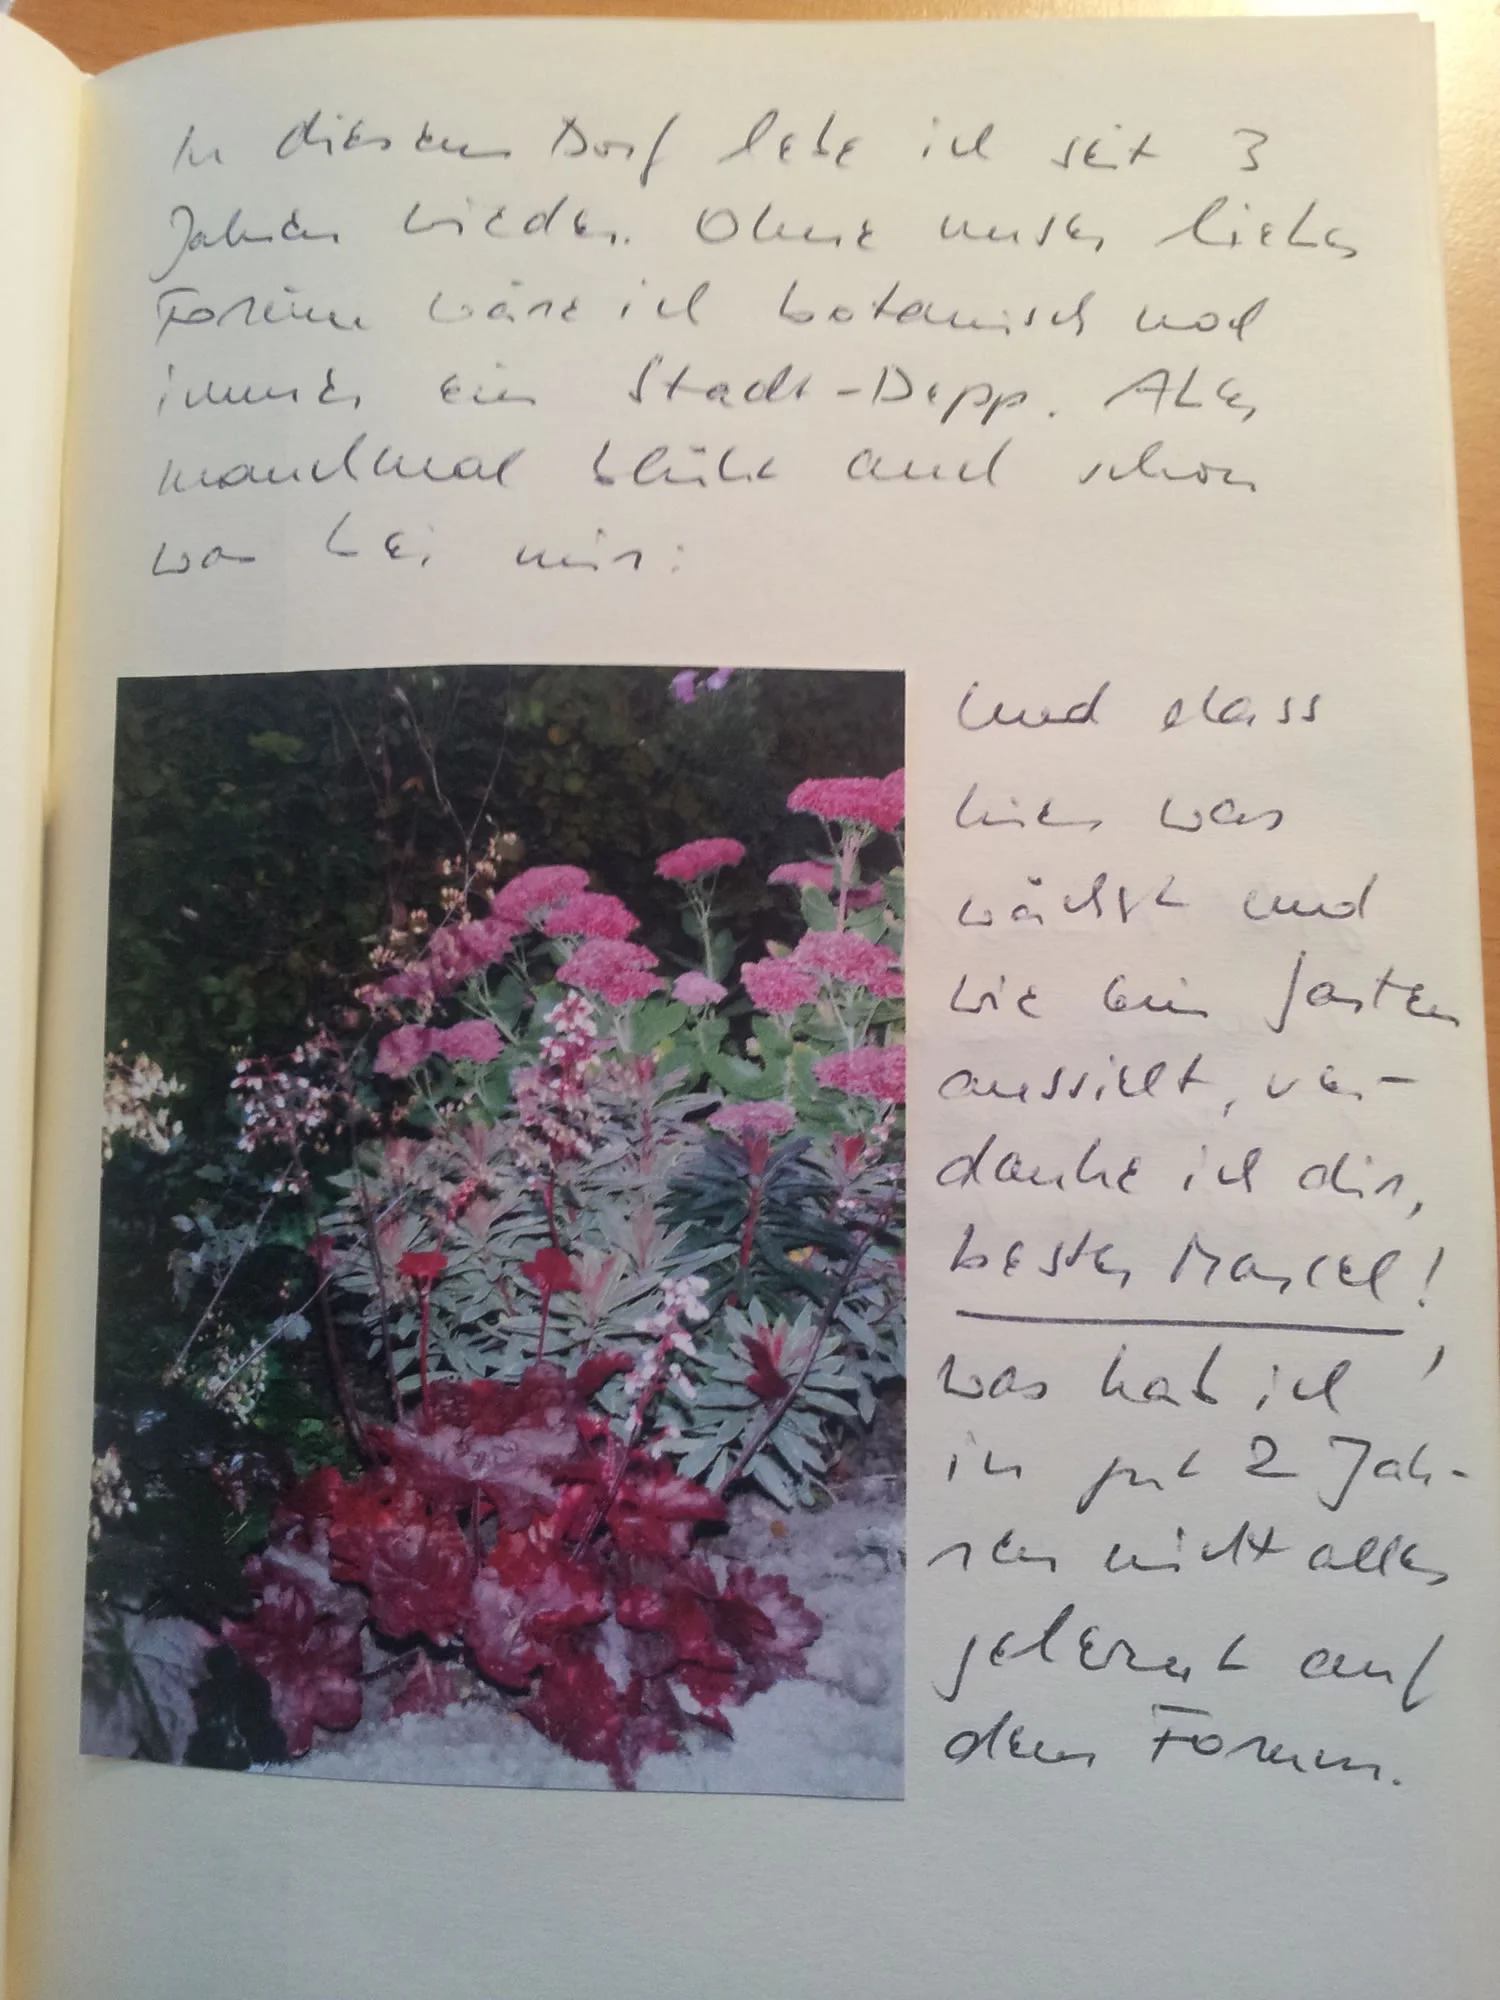 In diesem Dorf lebe ich seit 3
Jahren wieder. Ohne unser liebes
Forum wäre ich botanisch noch
immer ein Stadt-Depp. Aber
manchmal blüht auch schon
was bei mir:
Und dass
hier was
wächst und
wie ein Garten
aussieht, ver-
danke ich dir,
bester Marcel!
Was hab ich
in gut 2 Jah-
ren nicht alles
gelernt auf
dem Forum.